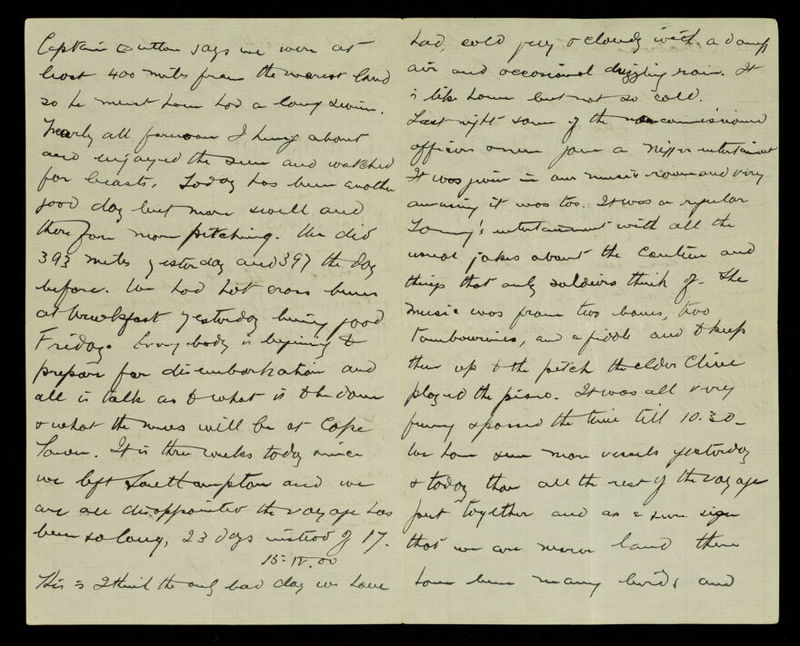 Captain Dutton says we were at
least 400 miles from the nearest land
so he must have had a long swim.
Nearly all forenoon I hung about
and enjoyed the sun and watched
for beasts. Today has been another
good day but more swell and
therefore more pitching. We did
393 miles yesterday and 397 the day
before. We had hot cross buns
at breakfast yesterday being good
Friday. Everybody is begining to
prepare for disembarkation and
all is talk as to what is to be done
& what the news will be at Cape
Town. It is three weeks today since
we left Southampton and we
are all disappointed the voyage has
been so long, 23 days instead of 17.
15-IV.00
This is I think the only bad day we have
had, cold grey & cloudy with a damp
air and occasional drizzling rain. It
is like home but not so cold.
Last night some of the noncommissioned
officers &c gave a entertainment
It was given in our music room and very
amusing it was too. It was a regular
Tommy's entertainment with all the
usual jokes about the canteen and
things that only soldiers think of. The
music was from two bones, two
tambourines, and a fiddle and to keep
them up to the pitch the elder Clive
played the piano. It was all very
funny & passed the time till 10.30 -
We have seen more vessels yesterday
& today than all the rest of the voyage
put together and as a sure sign
that we are nearer land there
have been many birds and